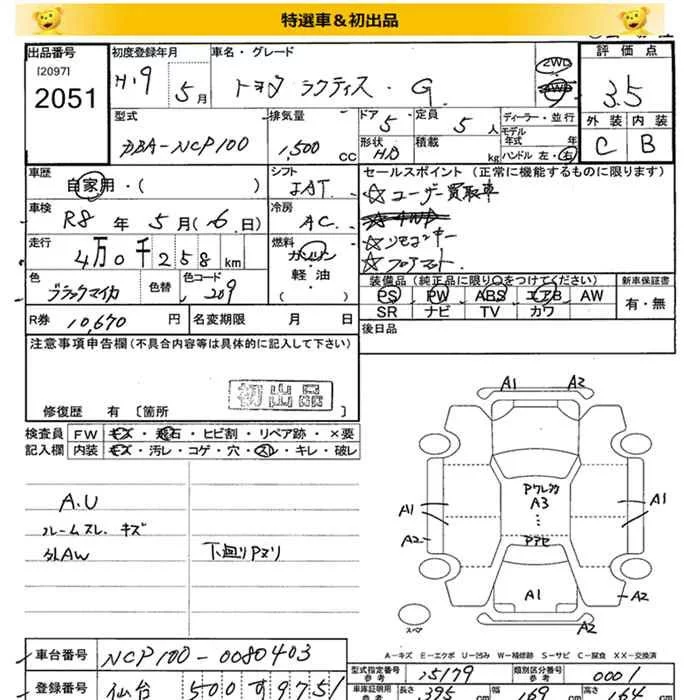 特選車＆初出品
出品番号
[2097]
2051
初度登録年月
H19年 5月
車名・グレード
トヨタ ラクティス・G
2WD
4WD
評価点
3.5
外装 内装
C B
型式
DBA-NCP100
排気量
1,500 cc
ドア 5
定員 5 人
形状 HB
積載 kg
ディーラー・並行
モデル年式 年
ハンドル 左・右
車歴
自家用・( )
シフト
IAT
セールスポイント（正常に機能するものに限ります）
☆ユーザー買取車
☆4WD
☆リモコンキー
☆フロアマット
車検
R8 年 5 月 ( 6 日)
冷房
AC
走行
4万0千258 km
燃料
ガソリン
軽・油
( )
色
ブラックマイカ
色替
色コード
209
装備品（純正品に限り○をつけてください）
PS PW ABS エアB AW
SR ナビ TV カワ
新車保証書
有・無
R券 10,670 円
名変期限 月 日
後日品
注意事項申告欄（不具合内容等は具体的に記入して下さい）
初出品
修復歴 有 〔箇所 〕
検査員記入欄
FW キズ・飛石・ヒビ割・リペア跡・×要
内装 キズ・汚レ・コゲ・穴・スレ・キレ・破レ
A.U
ルームスレ キズ
外AW
下廻りPサリ
A1 A2
PウレカA3
PアセA1
A1
A1
A2
A2
A2
スペア
A－キズ E－エクボ U－凹み W－補修跡 S－サビ C－腐食 XX－交換済
車台番号 NCP100-0080403
型式指定番号 参考 15179
類別区分番号 参考 0001
登録番号 仙台 500 す 9751
車庫証明用 参考
長さ 395 cm
幅 169 cm
高さ 164 cm